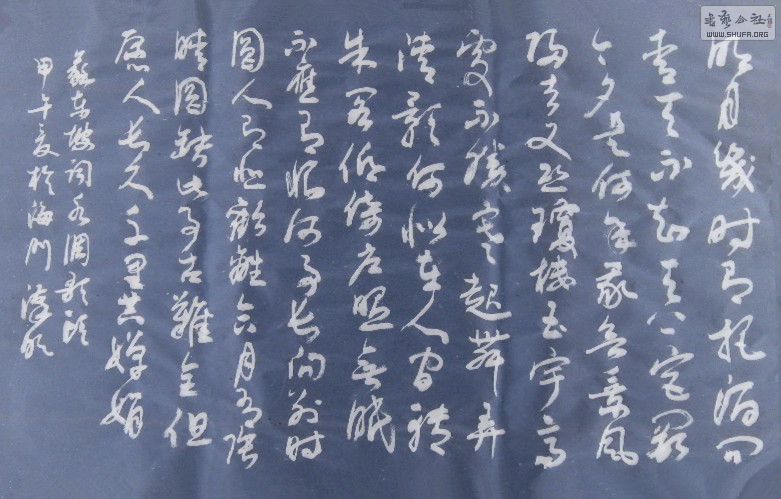 明月幾时有把酒问
青天不知天上宫阙
今夕是何年我欲乘风
归去又恐瓊楼玉宇高
处不胜寒起舞弄
清影何似在人间转
朱阁低绮户照无眠
不应有恨何事长向别时
圆人有悲歡離合月有阴
晴圆缺此事古難全但
愿人长久千里共嬋娟
蘇东坡词水调歌头
甲午夏於海门
书艺公社
WWW.SHUFA.ORG